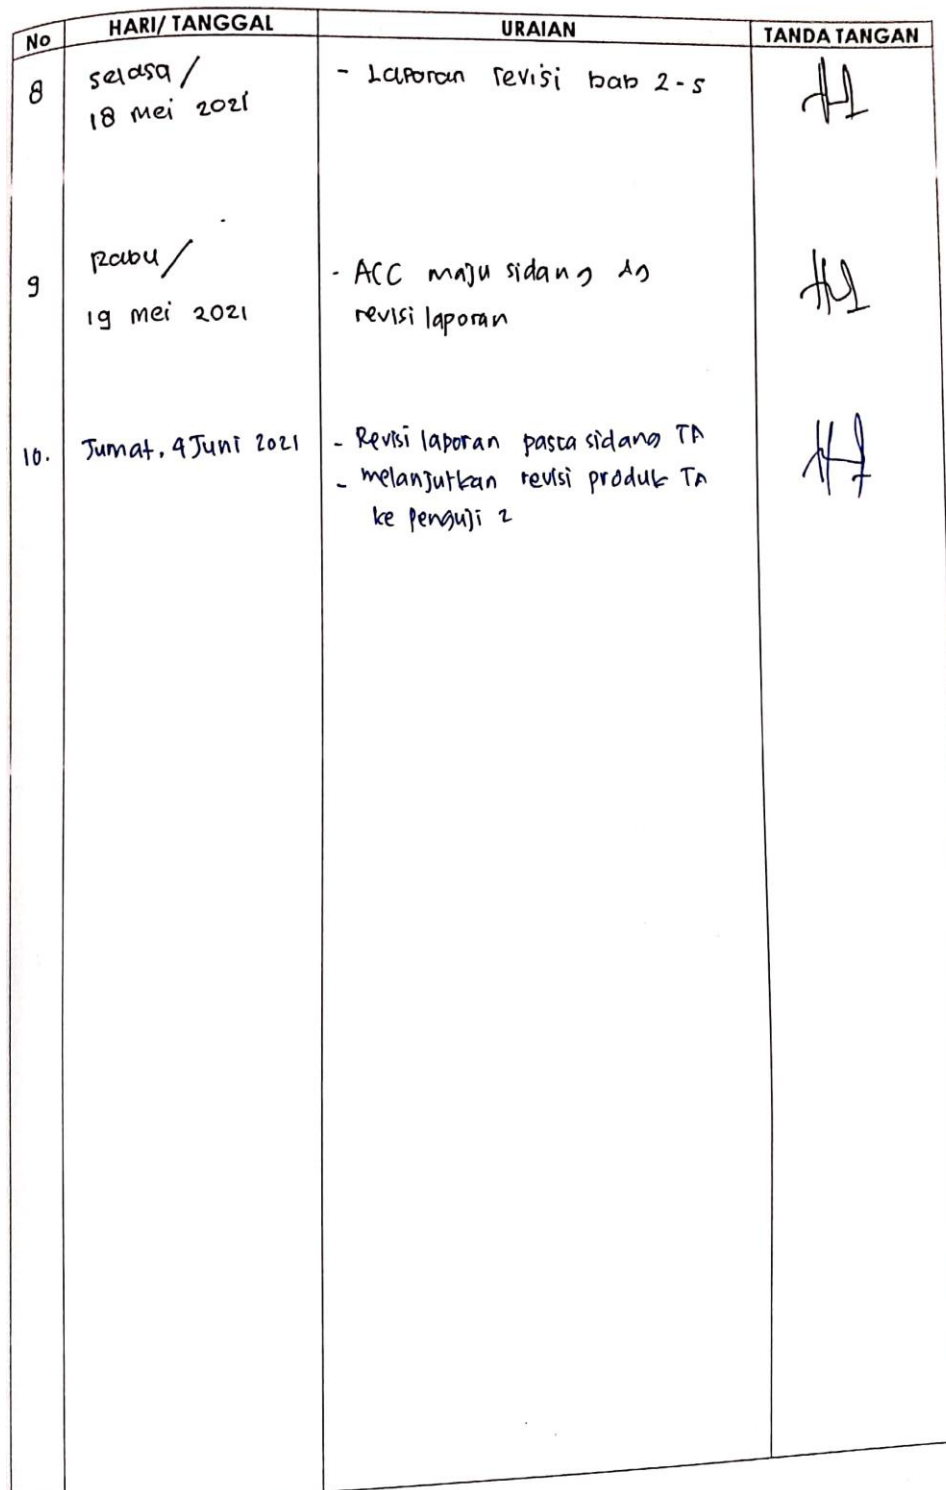 No HARI/ TANGGAL URAIAN TANDA TANGAN
8 selasa / - Laporan revisi bab 2-5
18 mei 2021
9 Rabu / - ACC maju sidang dg
19 mei 2021 revisi laporan
10. Jumat, 4 Juni 2021 - Revisi laporan pasca sidang TA
- melanjutkan revisi produk TA
ke penguji 2